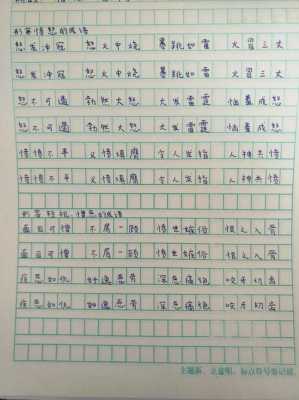 形容愤怒的成语
怒发冲冠 怒火中烧 暴跳如雷 火冒三丈
怒发冲冠 怒火中烧 暴跳如雷 火冒三丈
怒不可遏 勃然大怒 大发雷霆 恼羞成怒
怒不可遏 勃然大怒 大发雷霆 恼羞成怒
愤愤不平 义愤填膺 令人发指 人神共愤
愤愤不平 义愤填膺 令人发指 人神共愤
形容轻视、憎恶的成语
面目可憎 不屑一顾 愤世嫉俗 恨之入骨
面目可憎 不屑一顾 愤世嫉俗 恨之入骨
疾恶如仇 好逸恶劳 深恶痛绝 咬牙切齿
疾恶如仇 好逸恶劳 深恶痛绝 咬牙切齿
主题新、立意明，标点符号要记清